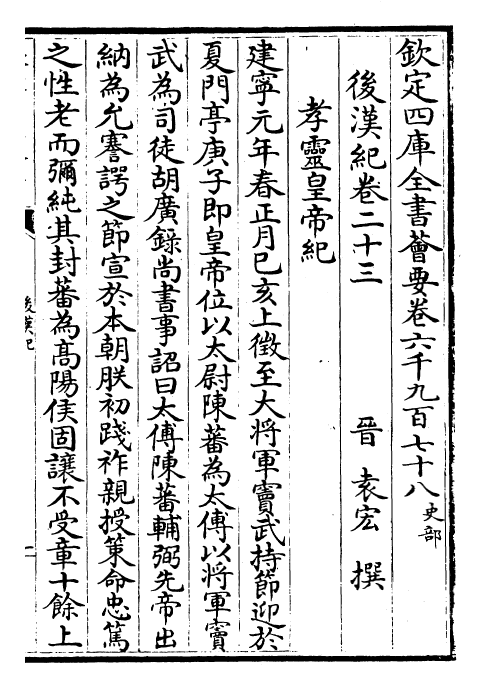 欽定四庫全書薈要卷六千九百七十八 史部
後漢紀卷二十三 晉 袁宏 撰
孝靈皇帝紀
建寧元年春正月己亥上徵至大將軍竇武持節迎於
夏門亭庚子即皇帝位以太尉陳蕃為太傅以將軍竇
武為司徒胡廣錄尚書事詔曰太傅陳蕃輔弼先帝出
納為允謇諤之節宣於本朝朕初踐祚親授策命忠篤
之性老而彌純其封蕃為高陽侯固讓不受章十餘上
後漢紀